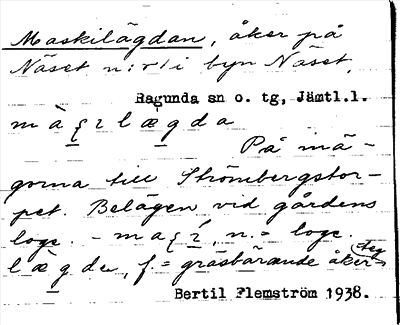 Maskilägdan, åker på
Näset n:r 1 i byn Näset,
Ragunda sn o. tg, Jämtl.l.
På mä-
gorna till Strömbergstor-
pet. Belägen vid gårdens
loge. - n. = loge.
f. = gräsbärande åker-
teg
Bertil Flemström 1938.